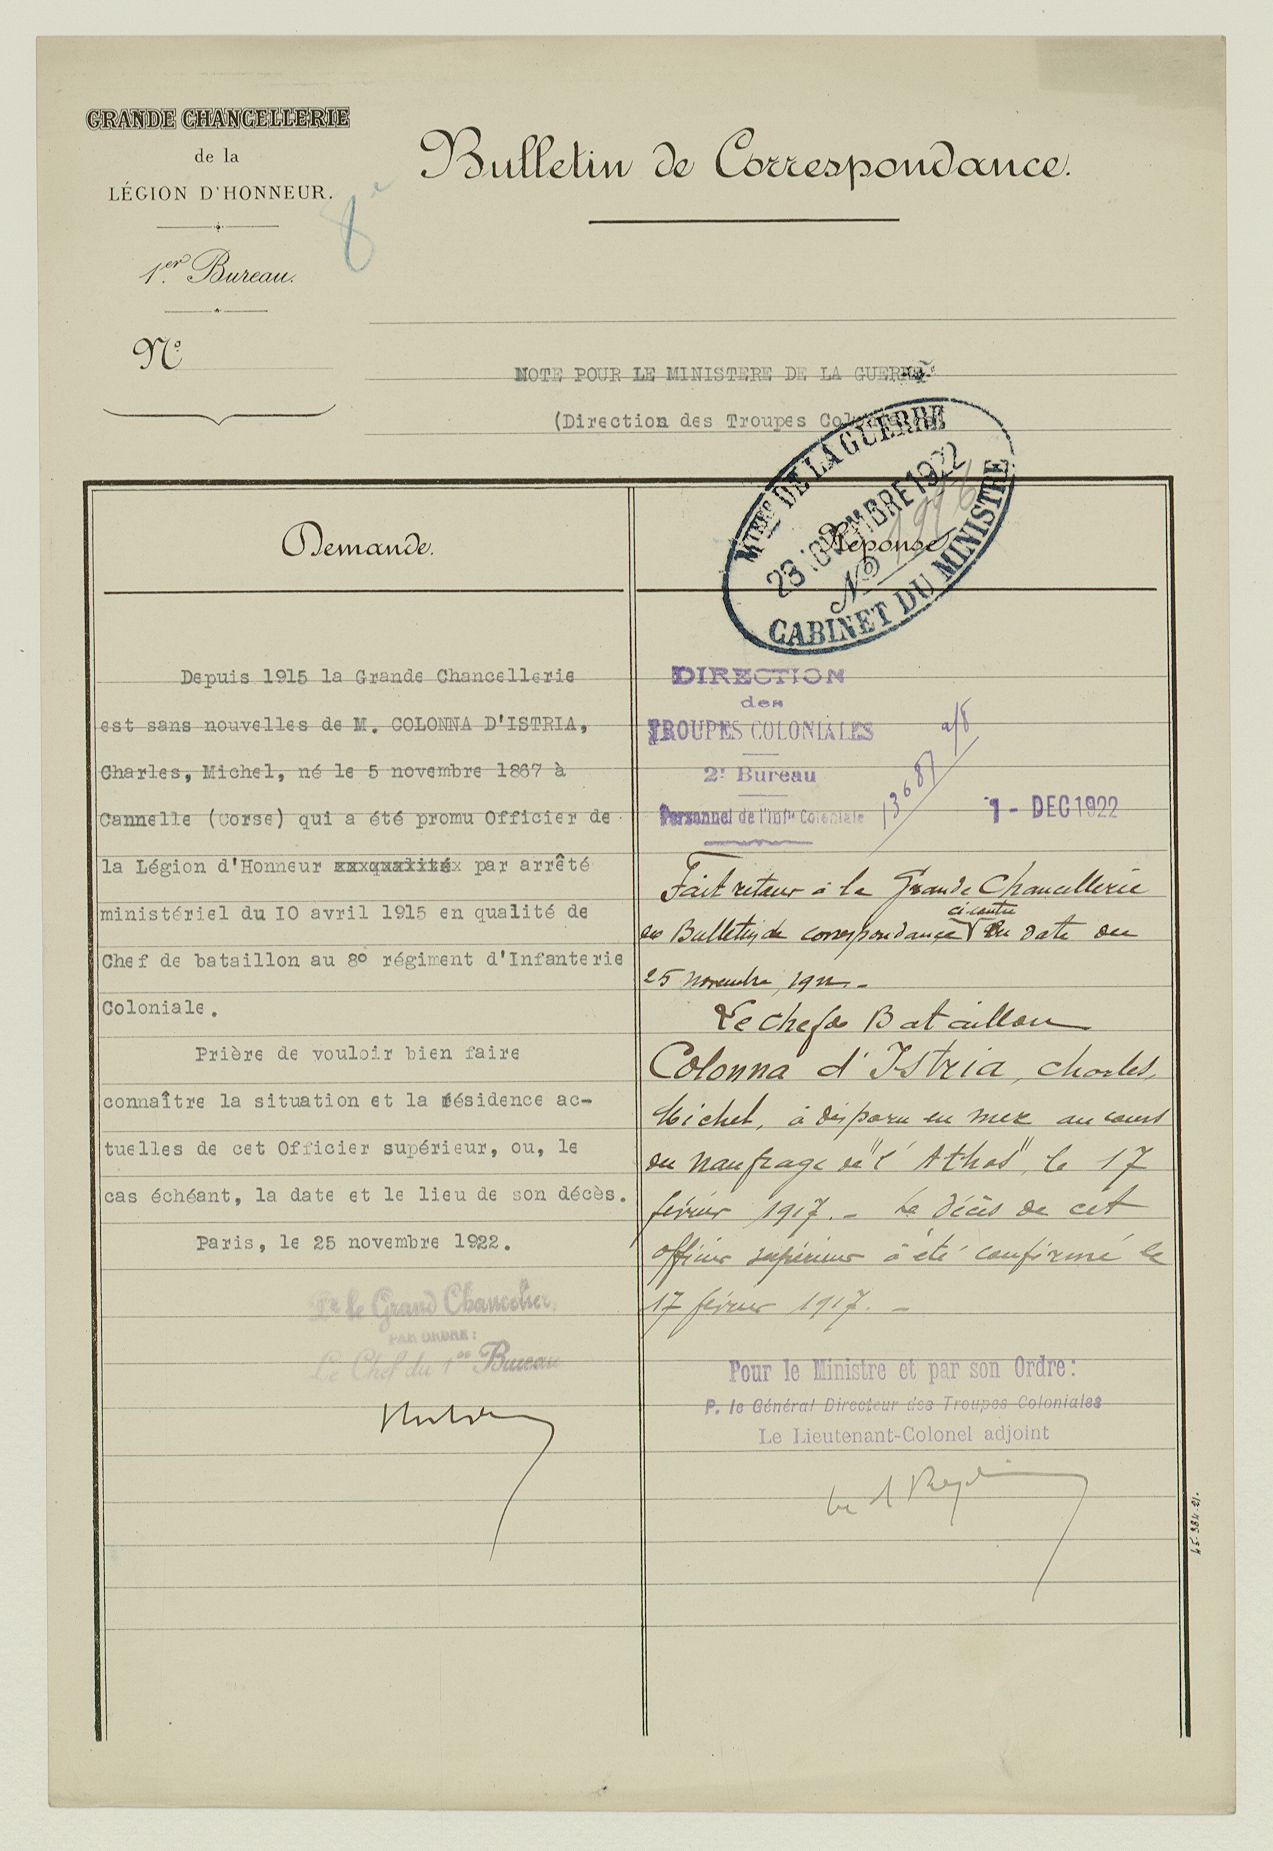 GRANDE CHANCELLERIE
de la
LÉGION D'HONNEUR.
8e
1.er Bureau.
N.o
Bulletin de Correspondance.
NOTE POUR LE MINISTERE DE LA GUERRE
(Direction des Troupes Coloniales
Mère DE LA GUERRE
23 NOVEMBRE 1922
No
CABINET DU MINISTRE
Demande.
Depuis 1915 la Grande Chancellerie
est sans nouvelles de M. COLONNA D'ISTRIA,
Charles, Michel, né le 5 novembre 1867 à
Cannelle (Corse) qui a été promu Officier de
la Légion d'Honneur xxxqualitéx par arrêté
ministériel du IO avril 1915 en qualité de
Chef de bataillon au 8° régiment d'Infanterie
Coloniale.
Prière de vouloir bien faire
connaître la situation et la résidence ac-
tuelles de cet Officier supérieur, ou, le
cas échéant, la date et le lieu de son décès.
Paris, le 25 novembre 1922.
Pr le Grand Chancelier,
PAR ORDRE :
Le Chef du 1er Bureau
Réponse
DIRECTION
des
TROUPES COLONIALES
2e Bureau
Personnel de l'Infie Coloniale
13687 2/8
1 - DEC 1922
Fait retour à la Grande Chancellerie
du Bulletin de correspondance ci-contre en date du
25 novembre 1922.-
Le chef de Bataillon
Colonna d'Istria, Charles,
Michel, à disparu en mer au cours
du naufrage de "l'Athos", le 17
février 1917.- Le décès de cet
officier supérieur à été confirmé le
17 février 1917.-
Pour le Ministre et par son Ordre :
P. le Général Directeur des Troupes Coloniales
Le Lieutenant-Colonel adjoint